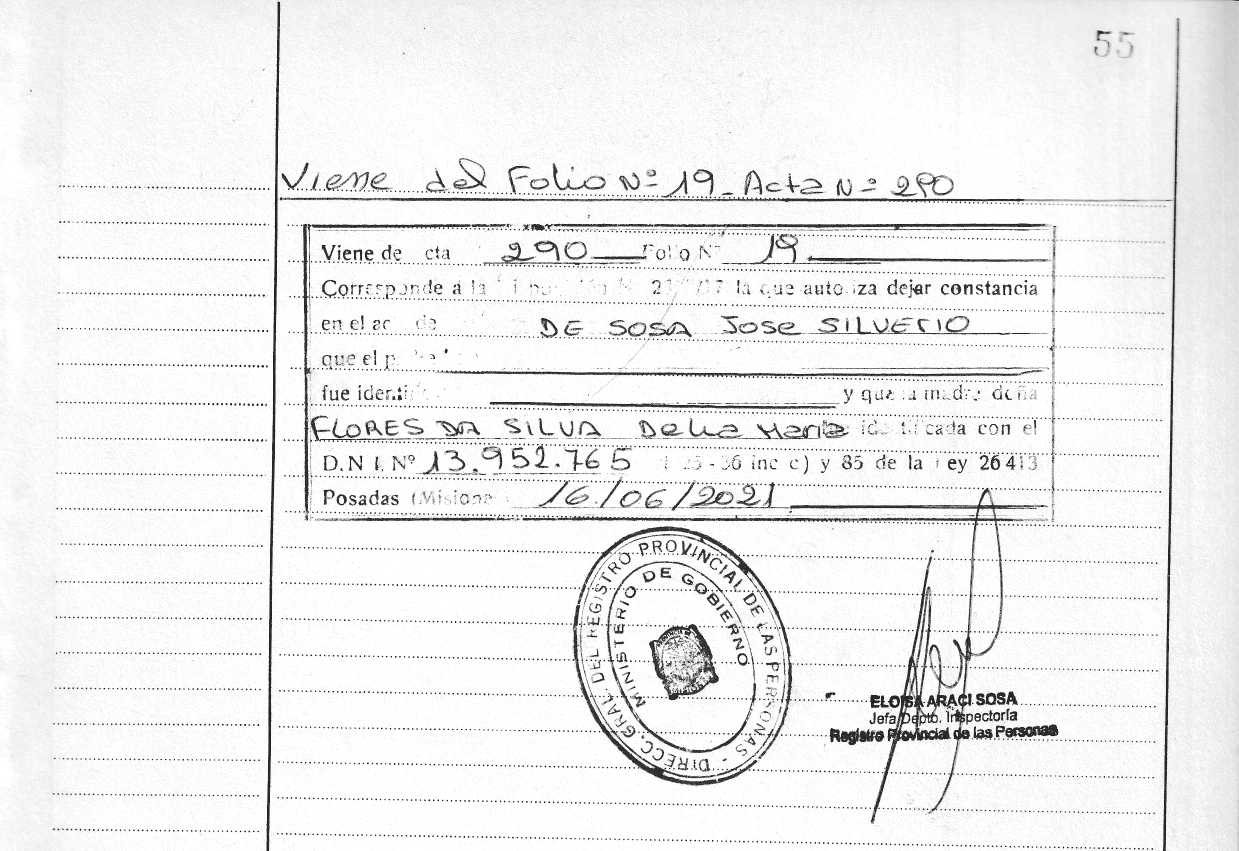 55
Viene del Folio Nº 19 - Acta Nº 290
Viene de cta 290 Folio Nº 19
Corresponde a la la que autoriza dejar constancia
en el ac de DE SOSA JOSE SILVERIO
que el
fue y que la madre doña
FLORES DA SILVA Delia Maria identificada con el
D.N.I. Nº 13.952.765 - 36 inc c) y 85 de la ley 26413
Posadas (Misiones 16/06/2021
DIRECC. GRAL. DEL REGISTRO PROVINCIAL DE LAS PERSONAS -
MINISTERIO DE GOBIERNO
ELOISA ARACI SOSA
Jefa Depto. Inspectoría
Registro Provincial de las Personas